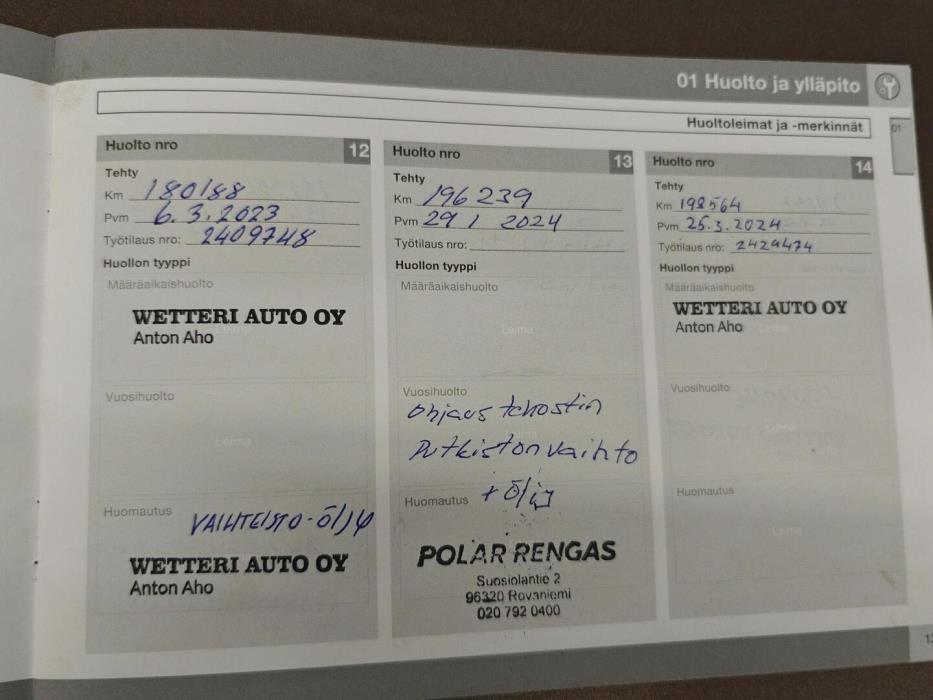 01 Huolto ja ylläpito
Huoltoleimat ja -merkinnät
01
Huolto nro 12
Tehty
Km 180188
Pvm 6.3.2023
Työtilaus nro: 2409748
Huollon tyyppi
Määräaikaishuolto
WETTERI AUTO OY
Anton Aho
Vuosihuolto
Leima
Huomautus
VAIHTEISTO-ÖLJY
WETTERI AUTO OY
Anton Aho
Huolto nro 13
Tehty
Km 196 239
Pvm 29 1 2024
Työtilaus nro:
Huollon tyyppi
Määräaikaishuolto
Leima
Vuosihuolto
Ohjaus tehostin
Putkiston vaihto
Huomautus + Öljy
POLAR RENGAS
Suosiolantie 2
96320 Rovaniemi
020 792 0400
Huolto nro 14
Tehty
Km 198564
Pvm 25.3.2024
Työtilaus nro: 2429474
Huollon tyyppi
Määräaikaishuolto
WETTERI AUTO OY
Anton Aho Leima
Vuosihuolto
Leima
Huomautus
Leima